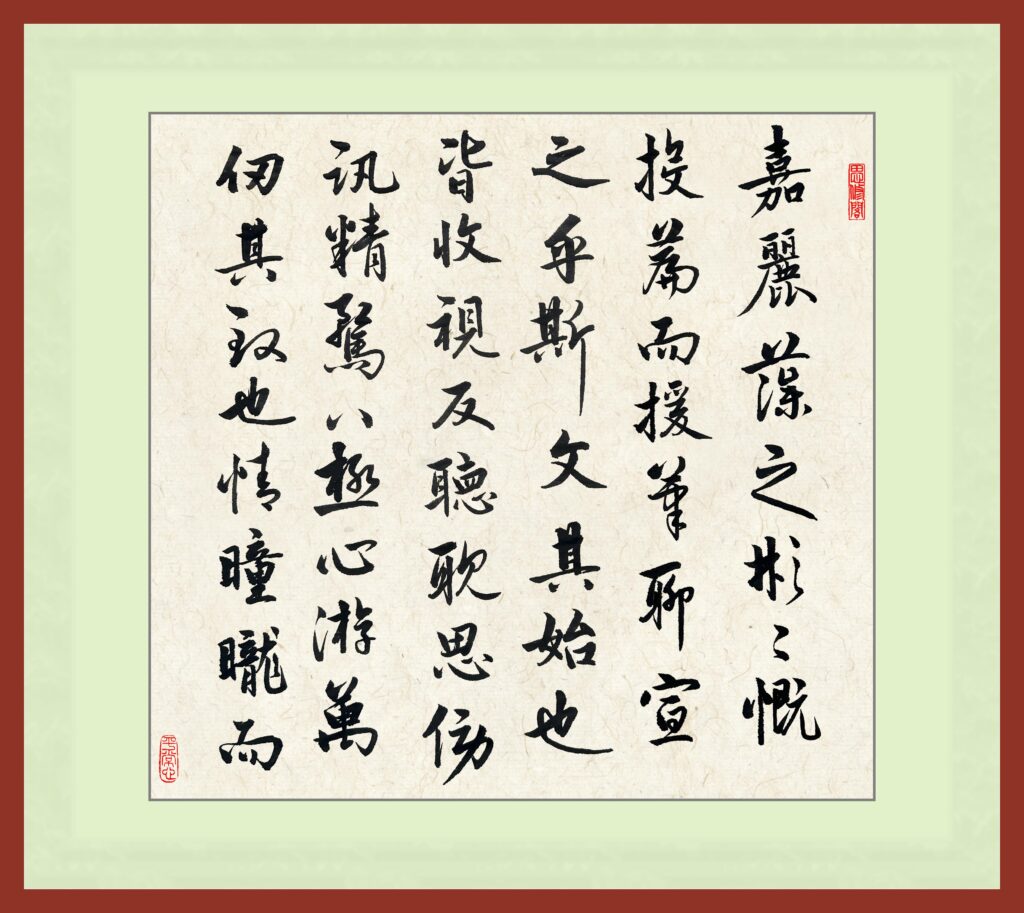 嘉麗藻之彬〻慨
投篇而援筆聊宣
之乎斯文其始也
皆收視反聽耽思傍
訊精騖八極心游萬
仞其致也情曈曨而
平常心